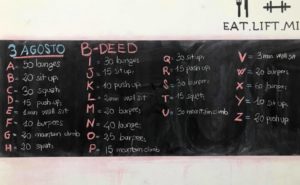 EAT.LIFT.MI
3 AGOSTO B-DEED
A- 50 lounges
B- 20 sit up
C- 30 squash
D- 15 push up
E- 1 min wall sit
F- 10 burpees
G- 20 mountain climb
H- 20 squats
I- 30 lounges
J- 15 sit up
K- 10 push up
L- 2 min wall sit
M- 20 burpees
N- 40 lounge
O- 25 burpees
P- 15 mountain climb
Q- 30 sit up
R- 15 push up
S- 30 burpees
T- 15 squat
U- 30 mountain climb
V- 3 min wall sit
W- 
X- 
Y- 
Z- 20 push up